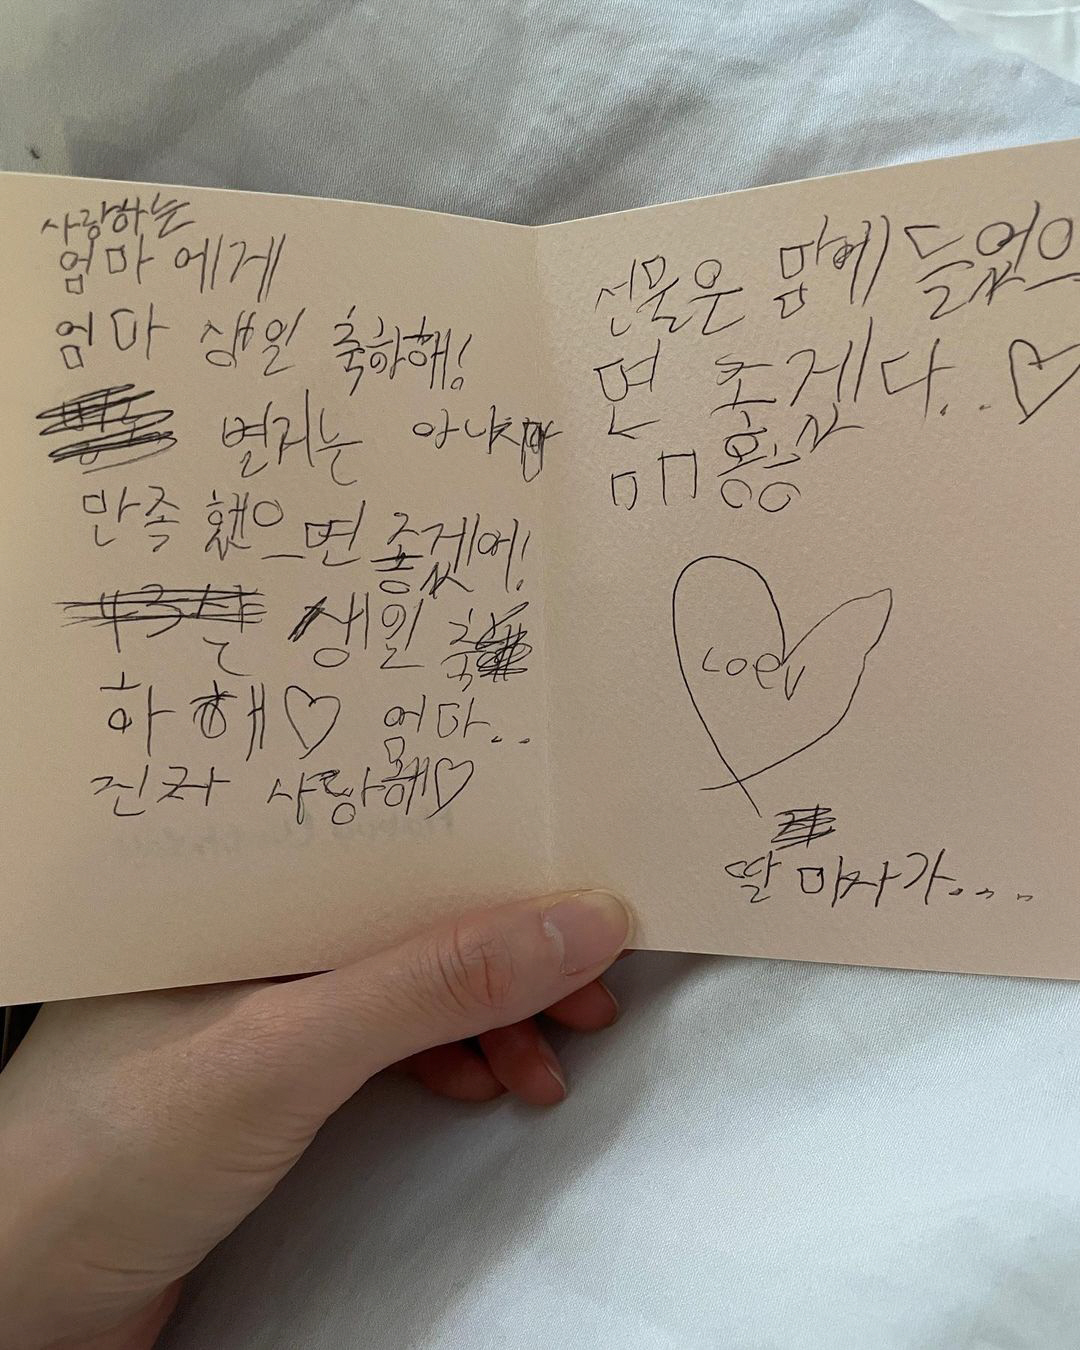 사랑하는
엄마에게
엄마 생일 축하해!
별거는 아니지만
만족 했으면 좋겠어!
생일 축
하해♡ 엄마..
진짜 사랑해♡
선물은 맘에 들었으
면 좋겠다..♡
딸 미자가....